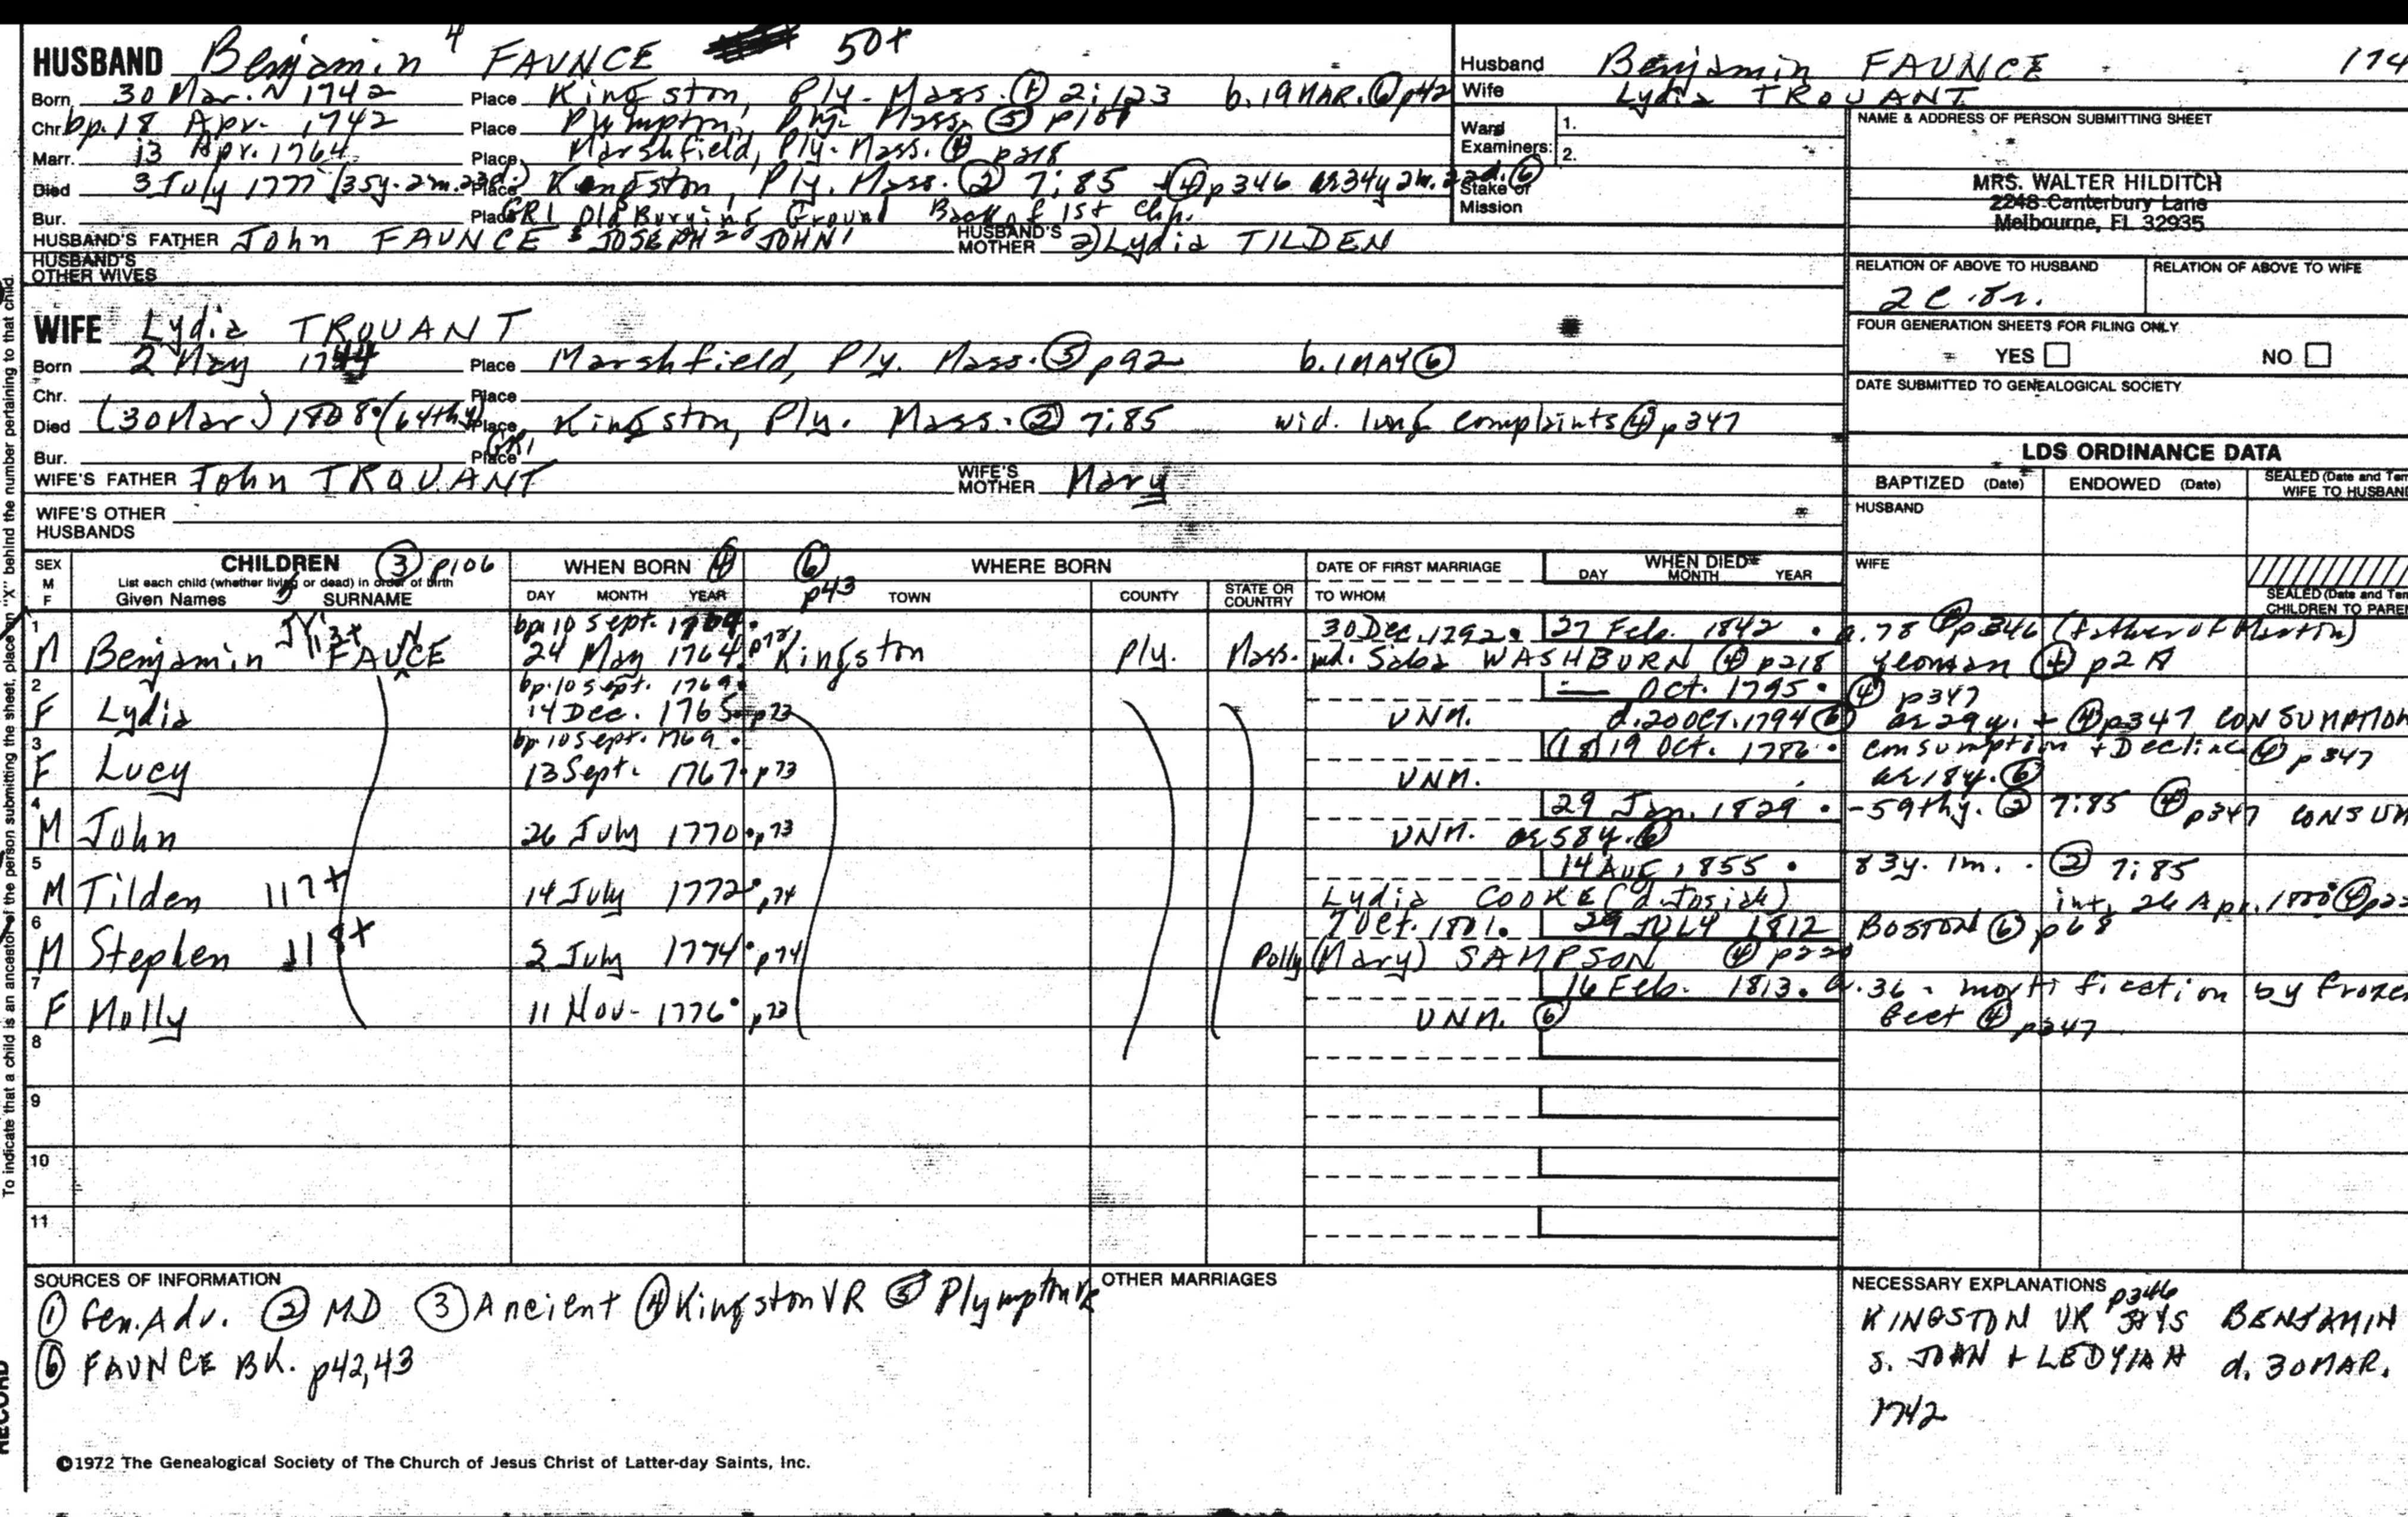 HUSBAND Benjamin 4 FAUNCE 50+
Born 30 Mar. N 1742 Place Kingston, Ply. Mass. ① 2:123 b. 19 MAR. ⑥ p42
Chr. bp. 18 Apr. 1742 Place Plympton, Ply. Mass. ⑤
Marr. 13 Apr. 1764 Place Marshfield, Ply. Mass. ④ p218
Died 3 July 1777 (35y. 2m. 23d.) Place Kingston, Ply. Mass. ② 7:85 + ④ p346 ae 34y 2m. ⑥
Bur. Place GR1 Old Burying Ground Back of 1st Ch.
HUSBAND'S FATHER John FAUNCE 3 JOSEPH 2 JOHN 1 HUSBAND'S MOTHER 2) Lydia TILDEN
HUSBAND'S OTHER WIVES
WIFE Lydia TROUANT
Born 2 May 1744 Place Marshfield, Ply. Mass. ⑤ p92 b. 1 MAY ⑥
Chr. Place
Died (30 Mar) 1808. (64thy) Place Kingston, Ply. Mass. ② 7:85 wid. lung complaints ④ p347
Bur. Place GR1
WIFE'S FATHER John TROUANT WIFE'S MOTHER Mary
WIFE'S OTHER HUSBANDS
Husband Benjamin FAUNCE 174
Wife Lydia TROUANT
Ward Examiners: 1.
2.
Stake or Mission
NAME & ADDRESS OF PERSON SUBMITTING SHEET
MRS. WALTER HILDITCH
2248 Canterbury Lane
Melbourne, FL 32935
RELATION OF ABOVE TO HUSBAND RELATION OF ABOVE TO WIFE
2c. 8r.
FOUR GENERATION SHEETS FOR FILING ONLY
YES NO
DATE SUBMITTED TO GENEALOGICAL SOCIETY
LDS ORDINANCE DATA
BAPTIZED (Date) ENDOWED (Date) SEALED (Date and Tem
WIFE TO HUSBAND
HUSBAND
WIFE
SEALED (Date and Tem
CHILDREN TO PAREN
SEX M F CHILDREN ③ p106 WHEN BORN ④ ⑥ p43 WHERE BORN DATE OF FIRST MARRIAGE WHEN DIED
List each child (whether living or dead) in order of birth
Given Names SURNAME DAY MONTH YEAR TOWN COUNTY STATE OR COUNTRY TO WHOM DAY MONTH YEAR
1 bp. 10 Sept. 1769. 30 Dec. 1792. 27 Feb. 1842. a. 78 ④ p346 (father of Martin)
M Benjamin Jr. FAUNCE 24 May 1764 p73 Kingston Ply. Mass. md. Saba WASHBURN ④ p218 yeoman ④
2 bp. 10 Sept. 1769. — Oct. 1795. ④ p347
F Lydia 14 Dec. 1765 p73 UNM. d. 20 OCT. 1794 ⑥ ae 29y. + ④ p347 CONSUMPTION
3 bp 10 Sept. 1769. (18) 19 Oct. 1786. consumption + Decline ④ p347
F Lucy 13 Sept. 1767. p73 UNM. ae 18y. ⑥
4 29 Jan. 1829. -59thy. ② 7:85 ④ p347 CONSUM
M John 26 July 1770. p73 UNM. ae 58y. ⑥
5 14 AUG 1855. 83y. 1m. ② 7:85
M Tilden 117+ 14 July 1772. p74 Lydia COOKE (d. Josiah) int. 26 Apr. 1800 ④
6 7 Oct. 1801. 29 JULY 1812 BOSTON ⑥ p68
M Stephen 118+ 2 July 1774. p74 Polly (Mary) SAMPSON ④
7 16 Feb. 1813. a. 36 - mortification by frozen
F Molly 11 Nov. 1776. p73 UNM. ⑥ feet ④ p347
8
9
10
11
SOURCES OF INFORMATION
① Gen. Adv. ② MD ③ Ancient ④ Kingston VR ⑤ Plympton VR
⑥ FAUNCE BK. p42,43
OTHER MARRIAGES
NECESSARY EXPLANATIONS
KINGSTON VR p346 SAYS BENJAMIN
s. JOHN + LEDYIAH d. 30 MAR.
1742
©1972 The Genealogical Society of The Church of Jesus Christ of Latter-day Saints, Inc.
To indicate that a child is an ancestor of the person submitting the sheet, place an "X" behind the number pertaining to that child.
RECORD